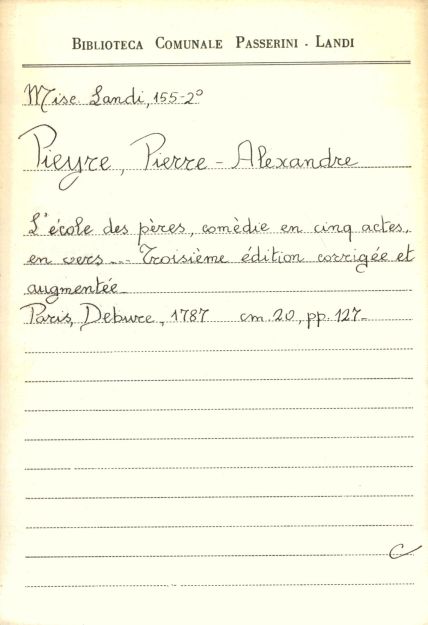 BIBLIOTECA COMUNALE PASSERINI - LANDI
Misc. Landi, 155-2°
Pieyre, Pierre-Alexandre
L'école des pères, comèdie en cinq actes,
en vers... Troisième édition corrigée et
augmentée.
Paris, Debure, 1787 cm. 20, pp. 127.
C